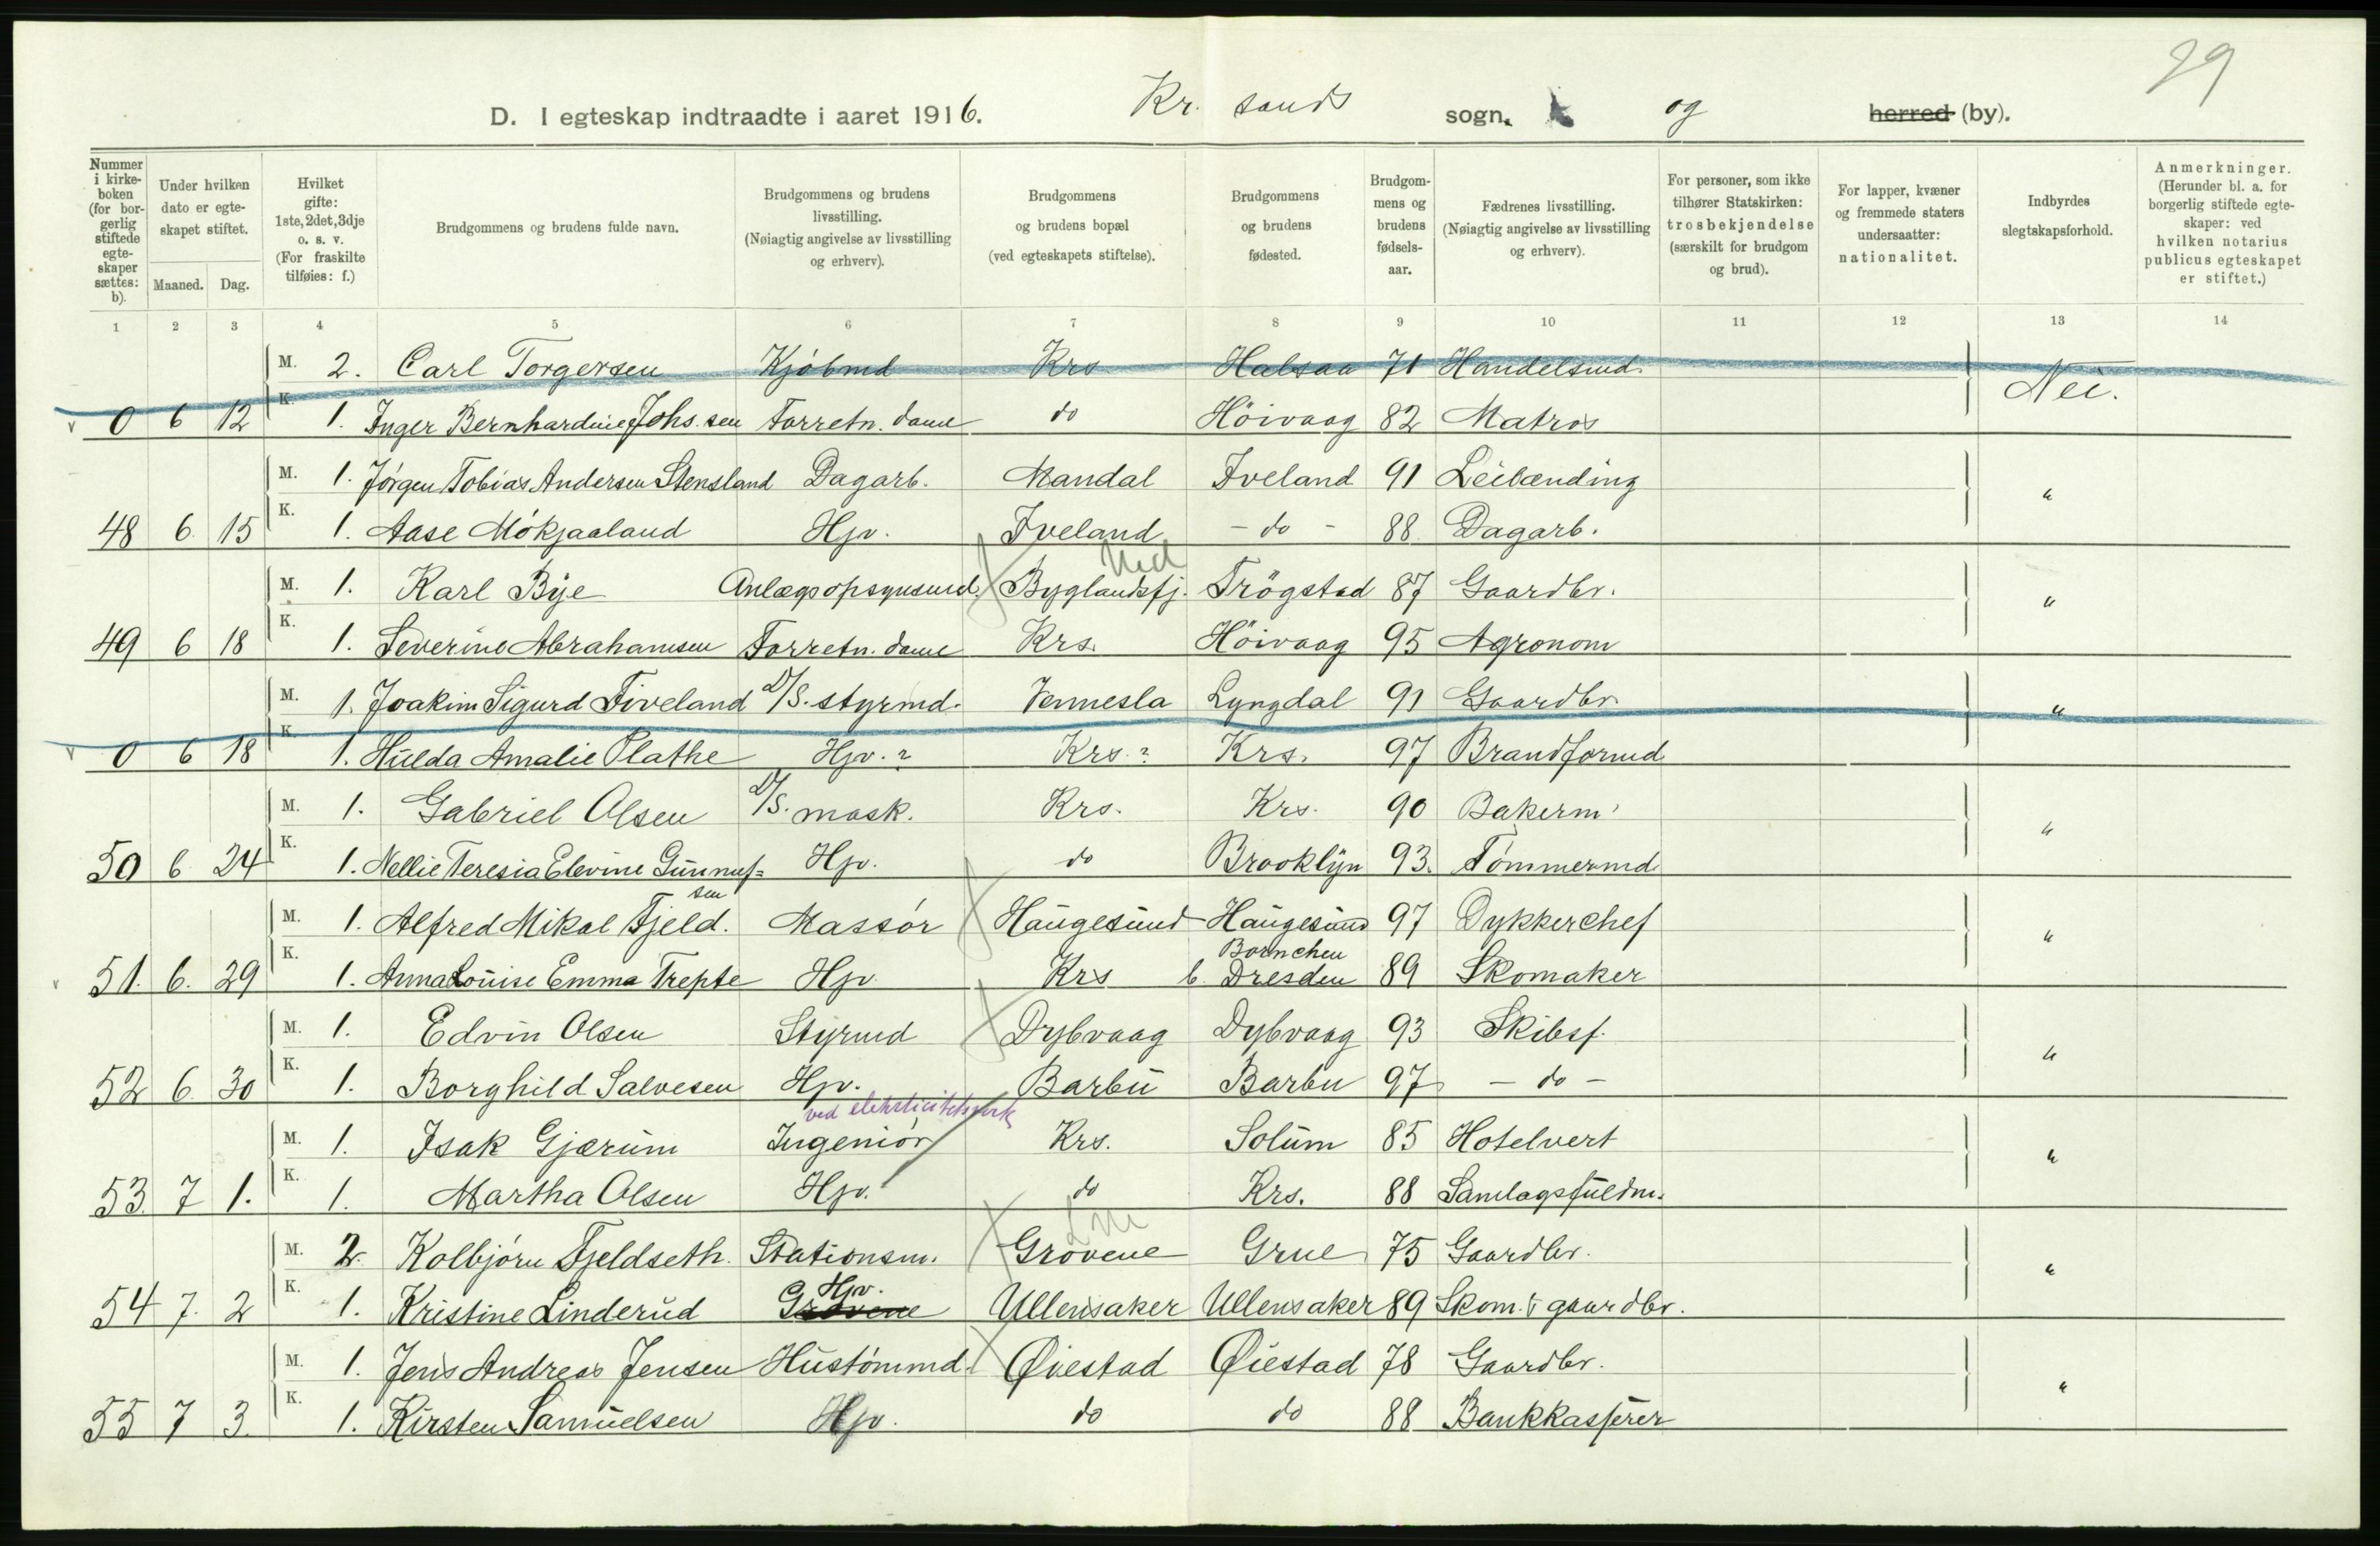 29
D. I egteskap indtraadte i aaret 1916. Kr. sands sogn. og herred (by).
Nummer i kirkeboken (for borgerlig stiftede egteskaper sættes: b).
Under hvilken dato er egteskapet stiftet.
Maaned. Dag.
Hvilket gifte: 1ste, 2det, 3dje o. s. v. (For fraskilte tilføies: f.)
Brudgommens og brudens fulde navn.
Brudgommens og brudens livsstilling. (Nøiagtig angivelse av livsstilling og erhverv).
Brudgommens og brudens bopæl (ved egteskapets stiftelse).
Brudgommens og brudens fødested.
Brudgommens og brudens fødselsaar.
Fædrenes livsstilling. (Nøiagtig angivelse av livsstilling og erhverv).
For personer, som ikke tilhører Statskirken: trosbekjendelse (særskilt for brudgom og brud).
For lapper, kvæner og fremmede staters undersaatter: nationalitet.
Indbyrdes slegtskapsforhold.
Anmerkninger. (Herunder bl. a. for borgerlig stiftede egteskaper: ved hvilken notarius publicus egteskapet er stiftet.)
1 2 3 4 5 6 7 8 9 10 11 12 13 14
M. 2. Carl Torgersen Kjöbmd Krs Halsaa 71 Handelsmd. Nei.
0 6 12 K. 1. Inger Bernhardine Johs.sen Forretn. dame do Höivaag 82 Matros
M. 1. Jörgen Tobias Andersen Stensland Dagarb. Mandal Iveland 91 Leilænding "
48 6. 15 K. 1. Aase Mökjaaland Hjv. Iveland - do - 88 Dagarb.
M. 1. Karl Bye Anlægsopsynsmd. Byglandsfj. Trögstad 87 Gaardbr. "
49 6 18 K. 1. Severine Abrahamsen Forretn. dame Krs. Höivaag 95 Agronom
M. 1. Joakim Sigurd Fiveland D/S. styrmd. Vennesla Lyngdal 91 Gaardbr. "
0 6 18 K. 1. Hulda Amalie Plathe Hjv. ? Krs. ? Krs. 97 Brandformd
M. 1. Gabriel Olsen D/S. mask. Krs. Krs. 90 Bakerm. "
50 6. 24 K. 1. Nellie Teresia Elevine Gunnufsen Hjv. do Brooklyn 93. Tömmermd
M. 1. Alfred Mikal Fjeld. Massör Haugesund Haugesund 97 Dykkerchef "
51. 6. 29 K. 1. Anna Louise Emma Trepte Hjv. Krs Bornchen b. Dresden 89 Skomaker
M. 1. Edvin Olsen Styrmd Dybvaag Dybvaag 93 Skibsf. "
52 6. 30 K. 1. Borghild Salvesen Hjv. Barbu Barbu 97 - do -
ved elektricitetsverk
M. 1. Isak Gjærum Ingeniör Krs. Solum 85 Hotelvert "
53. 7 1. K. 1. Martha Olsen Hjv. do Krs. 88 Samlagsfuldm.
M. 2. Kolbjörn Fjeldseth. Stationsm. Grovene Grue 75 Gaardbr. "
54 7. 2 K. 1. Kristine Linderud Grovene Hjv. Ullensaker Ullensaker 89 Skom. & gaardbr.
M. 1. Jens Andreas Jensen Hustömmd. Øiestad Øiestad 78 Gaardbr. "
55 7 3. K. 1. Kirsten Samuelsen Hjv. do do 88 Bankkasserer